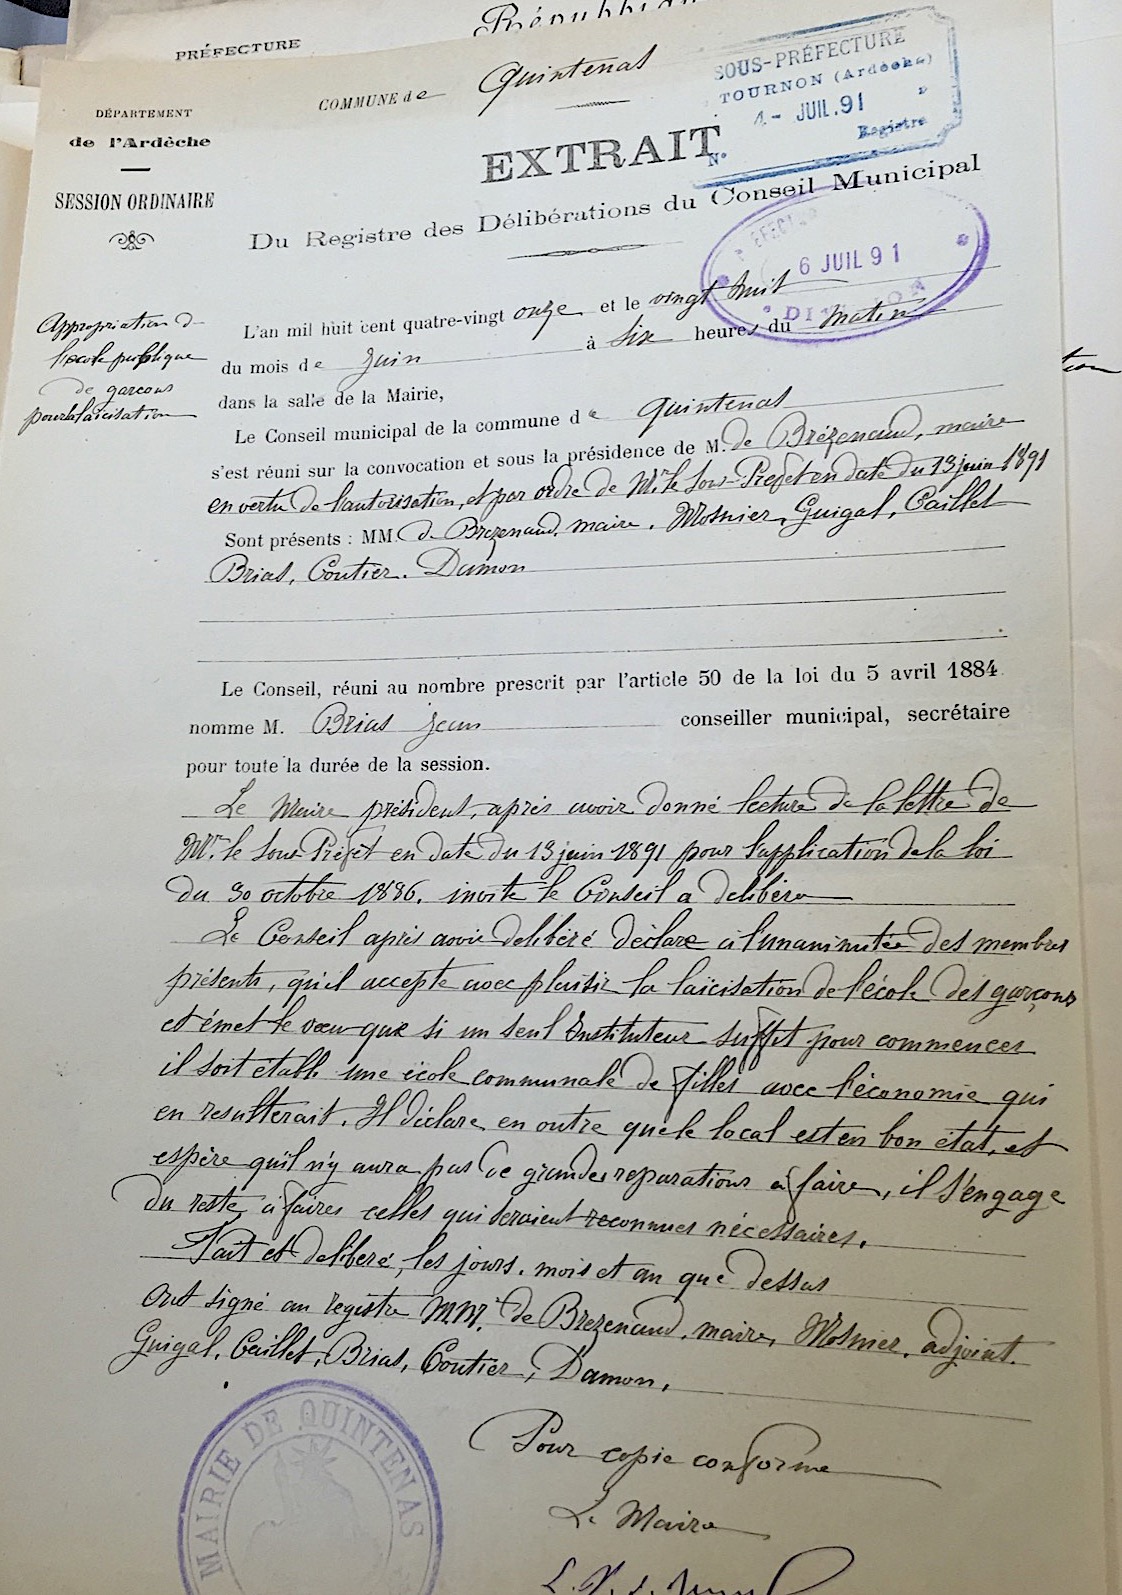 République
PRÉFECTURE
DÉPARTEMENT
de l'Ardèche
SESSION ORDINAIRE
COMMUNE de Quintenas
SOUS-PRÉFECTURE
TOURNON (Ardèche)
4 - JUIL. 91
N° Registre
EXTRAIT
Du Registre des Délibérations du Conseil Municipal
PRÉFECTURE
6 JUIL 91
DIVISION
Appropriation de
l'école publique
de garçons
pour la laïcisation
L'an mil huit cent quatre-vingt onze et le vingt huit
du mois de Juin à six heures du matin
dans la salle de la Mairie,
Le Conseil municipal de la commune de Quintenas
s'est réuni sur la convocation et sous la présidence de M. de Brézenaud, maire
en vertu de l'autorisation, et par ordre de Mr. le Sous-Préfet en date du 13 juin 1891
Sont présents : MM. de Brezenaud, maire, Mosnier, Guigal, Caillet
Brias, Coutier, Damon
Le Conseil, réuni au nombre prescrit par l'article 50 de la loi du 5 avril 1884
nomme M. Brias jean conseiller municipal, secrétaire
pour toute la durée de la session.
Le Maire président, après avoir donné lecture de la lettre de
Mr. le Sous-Préfet en date du 13 juin 1891 pour l'application de la loi
du 30 octobre 1886, invite le Conseil a delibérer
Le Conseil après avoir delibéré déclare à l'unanimitée des membres
présents, qu'il accepte avec plaisir la laïcisation de l'école des garçons
et émet le vœu que si un seul Instituteur suffit pour commencer
il soit établi une école communale de filles avec l'économie qui
en resulterait. Il déclare en outre que le local est en bon état, et
espère qu'il n'y aura pas de grandes reparations a faire, il s'engage
du reste à faires celles qui seraient reconnues nécessaires.
Fait et deliberé, les jours, mois et an que dessus
Ont signé au registre MMrs. de Brezenaud, maire, Mosnier, adjoint.
Guigal, Caillet, Brias, Coutier, Damon,
MAIRIE DE QUINTENAS
Pour copie conforme
Le Maire